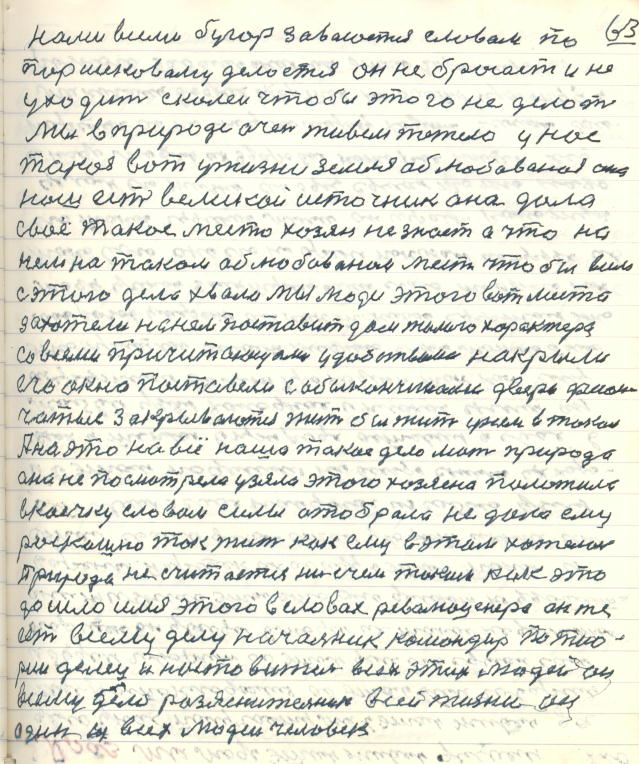 63
нами всеми бугор заваюется словам по
поршиковаму делается он не бросает и не
уходит с колеи чтобы этого не делат
Мы в природе очен живем тежело у нос
такая вот у жизни земля аблюбованая она
нош ест великой источник ана дала
своё такое место хозян не знает а что на
нем на таком аблюбованом месте чтобы было
с этого дела хвала мы люди этого вот места
захотели на нем поставит дом такого характера
со всеми причитающими удобствами накрыли
его окна поставели с абыконичками двери фелон-
чатые закрываются жит бы жит у нем в таком
А на это на всё наша такое дело мат природа
ана не посмотрела узяла этого хозяена положила
в коечку словом силы отобрала не дала ему
роскошно так жит как ему в этом хателос
Природа не считается ни с чем таким как это
дошло имя этого в словах революценера он же
ест всему делу начальник командир по тио-
рии делец и постовител всех этих людей он
всему делу разяснителник всей жизни он
один из всех людей человек